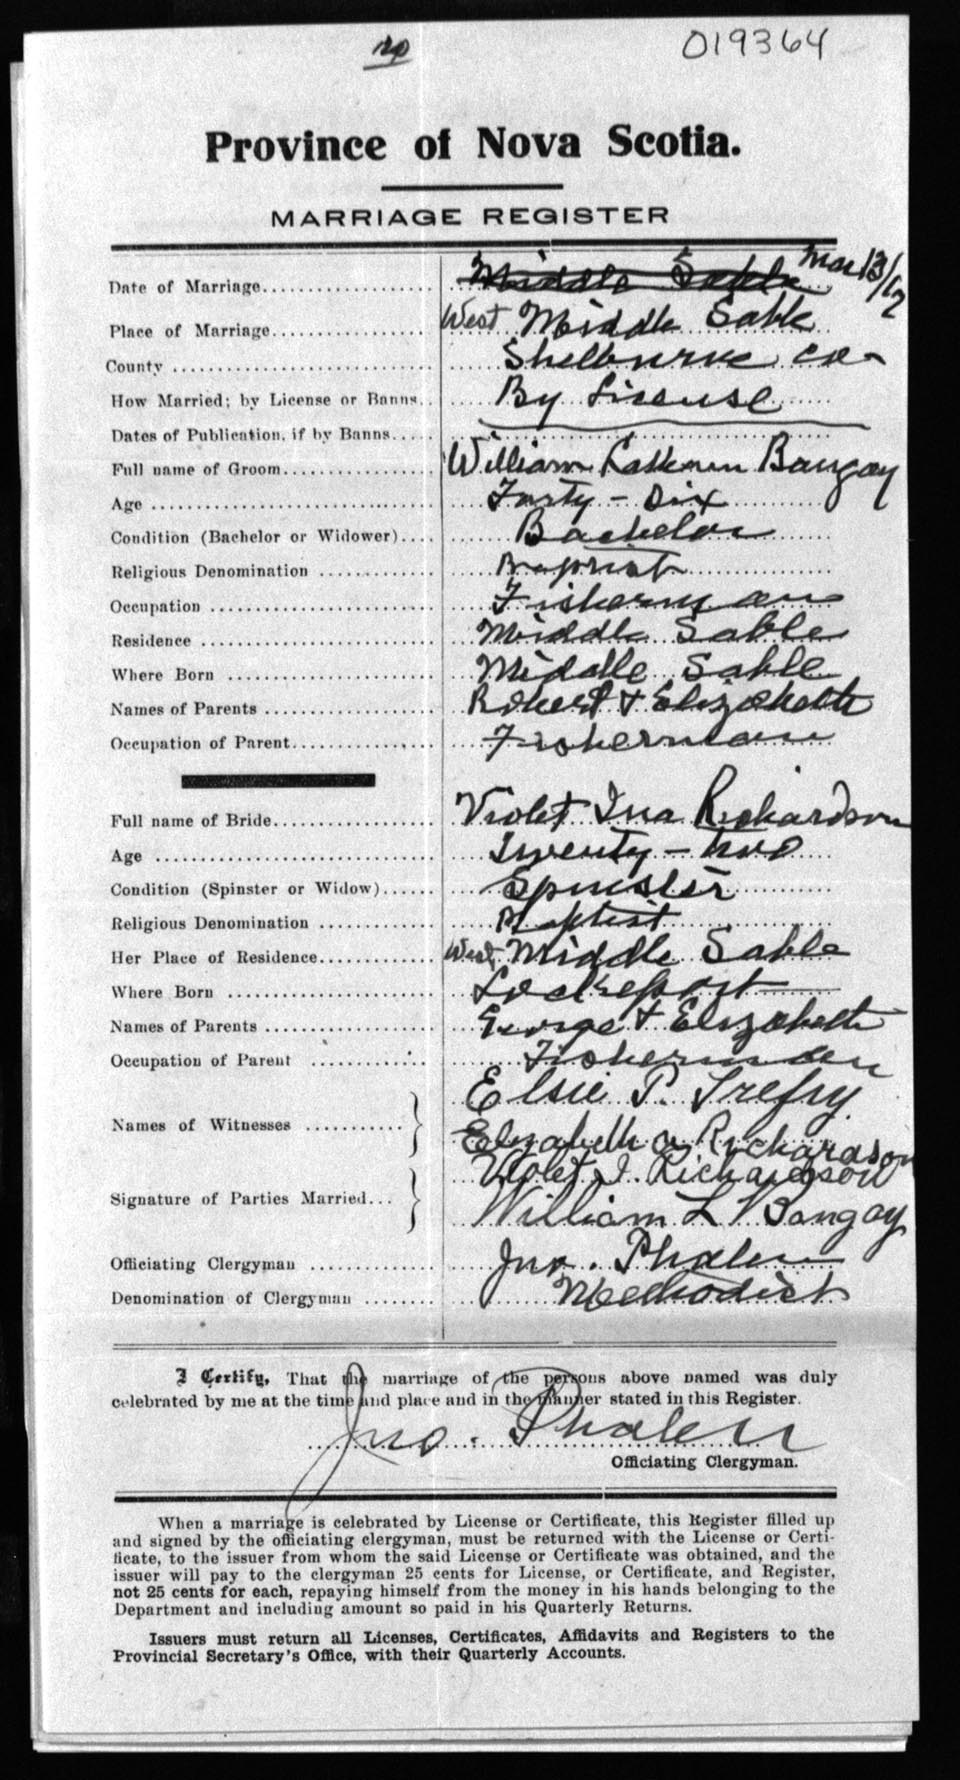 019364
Province of Nova Scotia.
MARRIAGE REGISTER
Date of Marriage Middle Sable Mar 13/17
Place of Marriage West Middle Sable
County Shelburne Co-
How Married; by License or Banns By License
Dates of Publication, if by Banns
Full name of Groom William Bangay
Age Forty-Six
Condition (Bachelor or Widower) Bachelor
Religious Denomination Baptist
Occupation Fisherman
Residence Middle Sable
Where Born Middle Sable
Names of Parents Robert & Elizabeth
Occupation of Parent Fisherman
Full name of Bride Violet Ina Richardson
Age Twenty-two
Condition (Spinster or Widow) Spinster
Religious Denomination Baptist
Her Place of Residence West Middle Sable
Where Born Lockeport
Names of Parents George & Elizabeth
Occupation of Parent Fisherman
Names of Witnesses Elsie P. Trefry
Elizabeth A Richardson
Signature of Parties Married Violet I. Richardson
William L Bangay
Officiating Clergyman Jno. Phalen
Denomination of Clergyman Methodist
I Certify, That the marriage of the persons above named was duly
celebrated by me at the time and place and in the manner stated in this Register.
Jno. Phalen
Officiating Clergyman.
When a marriage is celebrated by License or Certificate, this Register filled up
and signed by the officiating clergyman, must be returned with the License or Certi-
ficate, to the issuer from whom the said License or Certificate was obtained, and the
issuer will pay to the clergyman 25 cents for License, or Certificate, and Register,
not 25 cents for each, repaying himself from the money in his hands belonging to the
Department and including amount so paid in his Quarterly Returns.
Issuers must return all Licenses, Certificates, Affidavits and Registers to the
Provincial Secretary's Office, with their Quarterly Accounts.